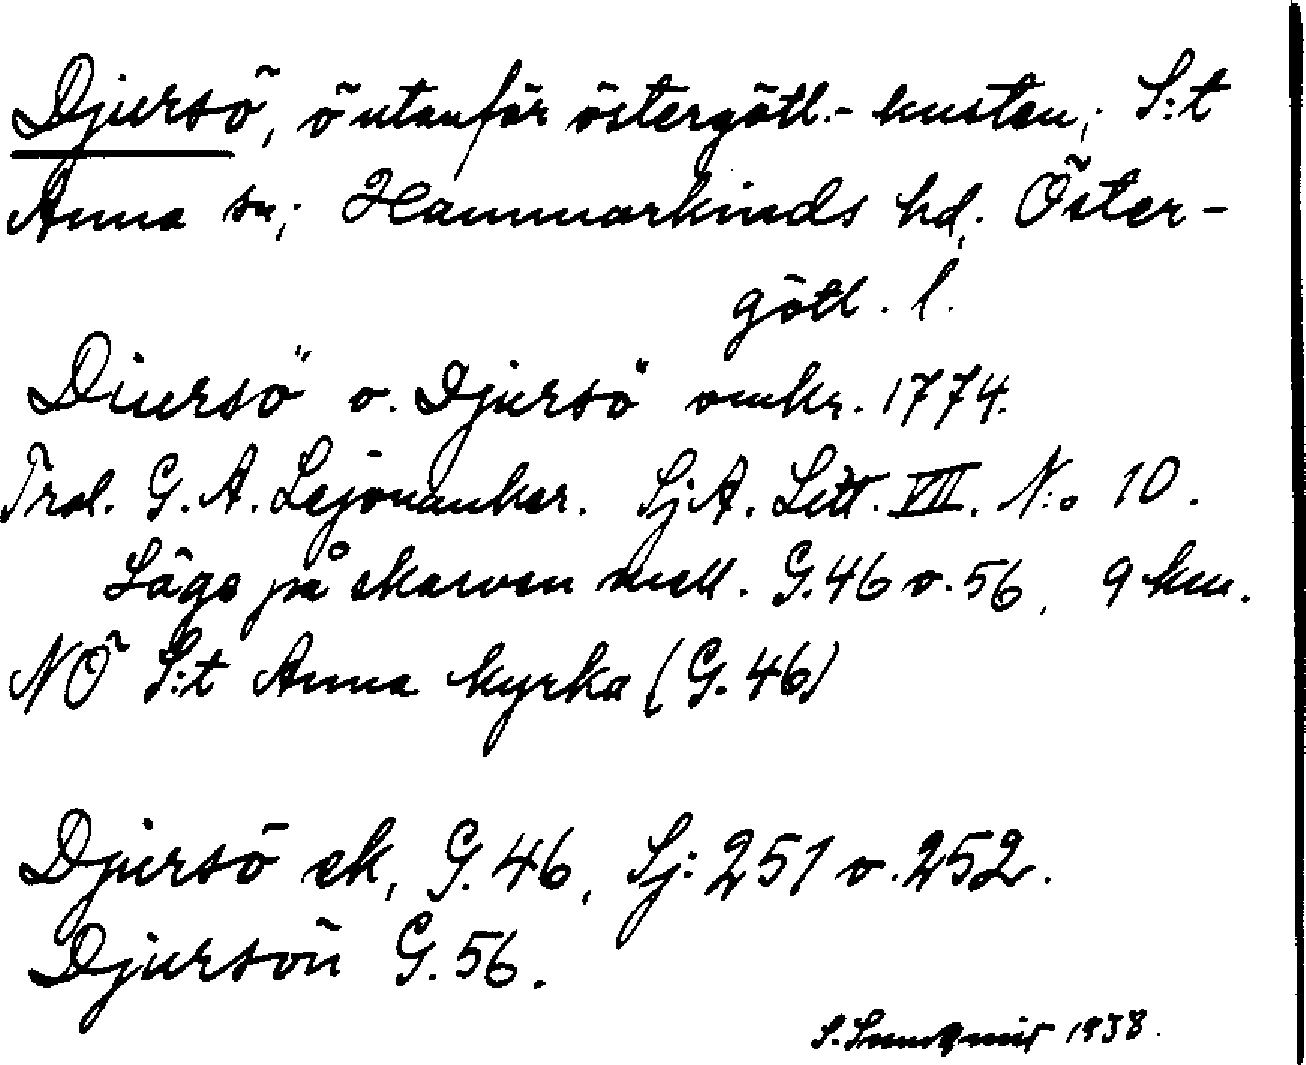 Djursö, ö utanför östergötl.- kusten; S:t
Anna sn; Hammarkinds hd. Öster-
götl. l.
Diursö o. Djursö omkr. 1774.
Trol. G. A. Lejonanker. Sj.A. Litt. VII. N:o 10.
Läge på skarven mell. G.46 o. 56, 9 km.
NÖ S:t Anna kyrka (G. 46)
Djursö sk, G. 46, Sj: 251 o. 252.
Djursön G. 56.
S. 1938.